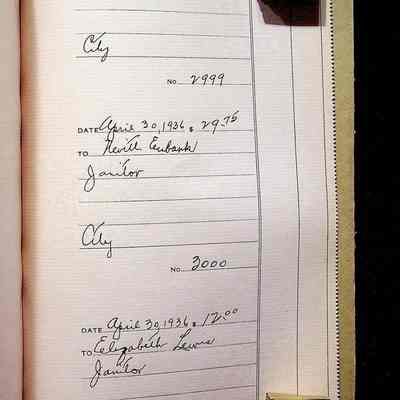 City
No. 2999
DATE April 30, 1936 $ 29.75
TO Nevith Eubank
Janitor
City
No. 3000
DATE April 30, 1936 $ 12.00
TO Elizabeth Lewis
Janitor